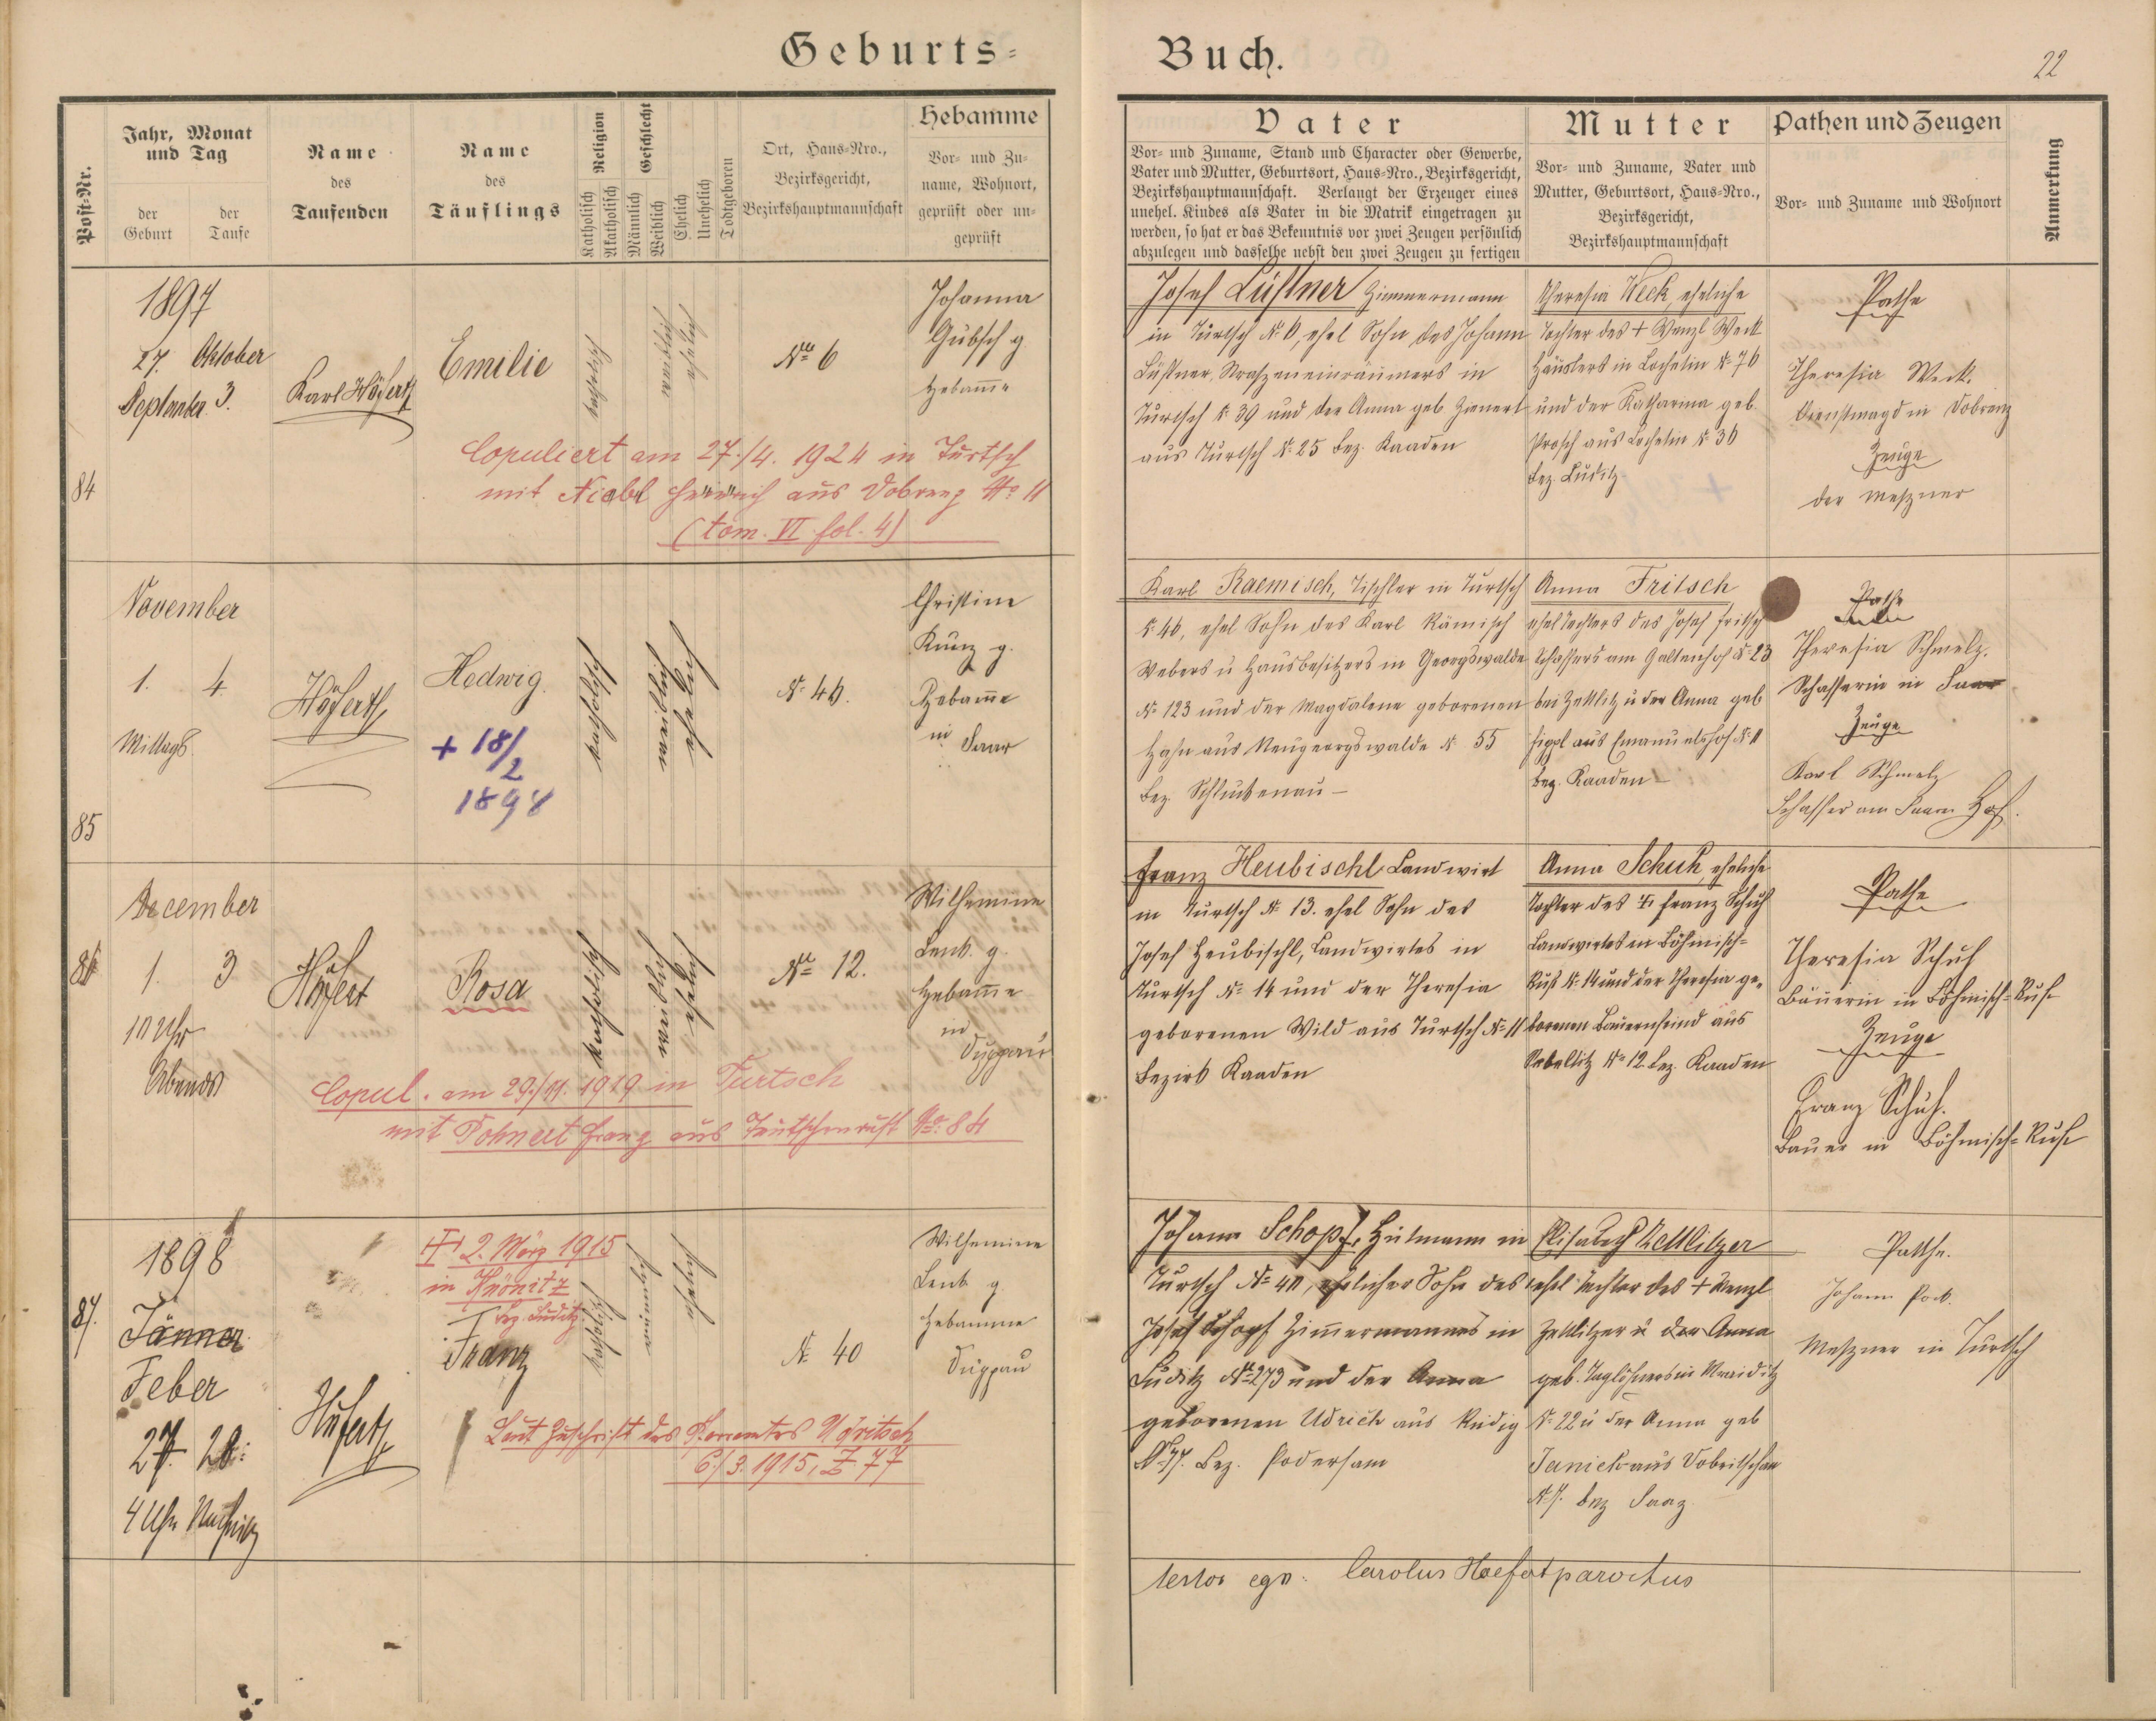 Geburts-
Buch.
22
Post-Nr.
Jahr, Monat
und Tag
der
Geburt
der
Taufe
Name
des
Taufenden
Name
des
Täuflings
Religion
Katholisch
Akatholisch
Geschlecht
Männlich
Weiblich
Ehelich
Unehelich
Todtgeboren
Ort, Haus-Nro.,
Bezirksgericht,
Bezirkshauptmannschaft
Hebamme
Vor- und Zu-
name, Wohnort,
geprüft oder un-
geprüft
Vater
Vor- und Zuname, Stand und Character oder Gewerbe,
Vater und Mutter, Geburtsort, Haus-Nro., Bezirksgericht,
Bezirkshauptmannschaft. Verlangt der Erzeuger eines
unehel. Kindes als Vater in die Matrik eingetragen zu
werden, so hat er das Bekenntnis vor zwei Zeugen persönlich
abzulegen und dasselbe nebst den zwei Zeugen zu fertigen
Mutter
Vor- und Zuname, Vater und
Mutter, Geburtsort, Haus-Nro.,
Bezirksgericht,
Bezirkshauptmannschaft
Pathen und Zeugen
Vor- und Zuname und Wohnort
Anmerkung
84
1897
27. Oktober
September 3.
Karl Höfert
Emilie
katholisch
weiblich
ehelich
No 6
Johanna
Gübsch g
Hebamme
Copuliert am 27./4. 1924 in Turtsch
mit Nickl Heinrich aus Dobrenz No 11
(tom. VI fol. 4)
Josef Lüftner Zimmermann
in Turtsch N. 6, ehel Sohn des Johann
Lüftner, Straszeneinräumers in
Turtsch N. 39 und der Anna geb. Zienert
aus Turtsch N. 25 Bez. Kaaden
Theresia Weck, eheliche
Tochter des + Wenzl Weck
Häuslers in Lochetin N. 76
und der Katharina geb.
Prosch aus Lochetin N. 36
Bez. Luditz
Pathe
Theresia Weck.
Dienstmagd in Dobrenz
Zeuge
der Meszner
85
November
1. 4.
Mittags.
Höfert
Hedwig.
+ 18/2
1898
katholisch
weiblich
ehelich
N. 46.
Christine
Kunz g.
Hebamme
in Saar
Karl Raemisch, Tischler in Turtsch
N. 46, ehel Sohn des Karl Rämisch
Webers u Hausbesitzers in Georgswalde
N. 123 und der Magdalena geborenen
Hahn aus Neugeorgswalde N. 55
Bez. Schluckenau –
Anna Fritsch
ehel Tochters des Josef Fritsch
Schaffers am Galtenhof N. 23
bei Zettlitz u der Anna geb
aus Emanuelshof N. 11
Bez. Kaaden –
Pathe
Theresia Schmelz.
Schafferin in Saar
Zeuge
Karl Schmelz
Schaffer am Saarer Hof.
86
December
1. 3
10 Uhr
Abends
Höfert
Rosa
katholisch
weiblich
ehelich
No 12.
Wilhemine
Lenk. g.
Hebamme
in
Duppau
Copul. am 29./11. 1919 in Turtsch
mit Pohnert Franz aus Deutschenrust No. 84
Franz Heubischl Landwirt
in Turtsch N. 13. ehel Sohn des
Josef Heubischl, Landwirtes in
Turtsch N. 14 und der Theresia
geborenen Wild aus Turtsch N. 11
Bezirk Kaaden
Anna Schuh, eheliche
Tochter des + Franz Schuh
Landwirtes in Böhmisch-
Rust N. 14 und der Theresia ge-
borenen Bauernfeind aus
N. 12 Bez. Kaaden
Pathe
Theresia Schuh
Bäuerin in Böhmisch-Rust
Zeuge
Franz Schuh.
Bauer in Böhmisch-Rust
87.
1898
Jänner
Feber
27. 28.
4 Uhr Nachmittg
Höfert
+ 2. März 1915
in Knönitz
Bez. Luditz
Franz
katholisch
männlich
ehelich
N. 40
Wilhemine
Lenk g
Hebamme
Duppau
Laut Zuschrift des Pfarramtes Udritsch
6./3. 1915, Z 77
Johann Schopf, Hutmann in
Turtsch N. 40, ehelicher Sohn des
Josef Schopf Zimmermannes in
Luditz No 273 und der Anna
geborenen Udrich aus Rudig
N. 77. Bez. Podersam
Elisabeth Zettlitzer
ehel Tochter des + Wenzl
Zettlitzer u der Anna
geb. Taglöhners in
N. 22 u der Anna geb
Janick aus Dobritschan
N. 7. Bez Saaz.
Pathe.
Johann Pock.
Meszner in Turtsch
testor ego: Carolus Hoefert parochus